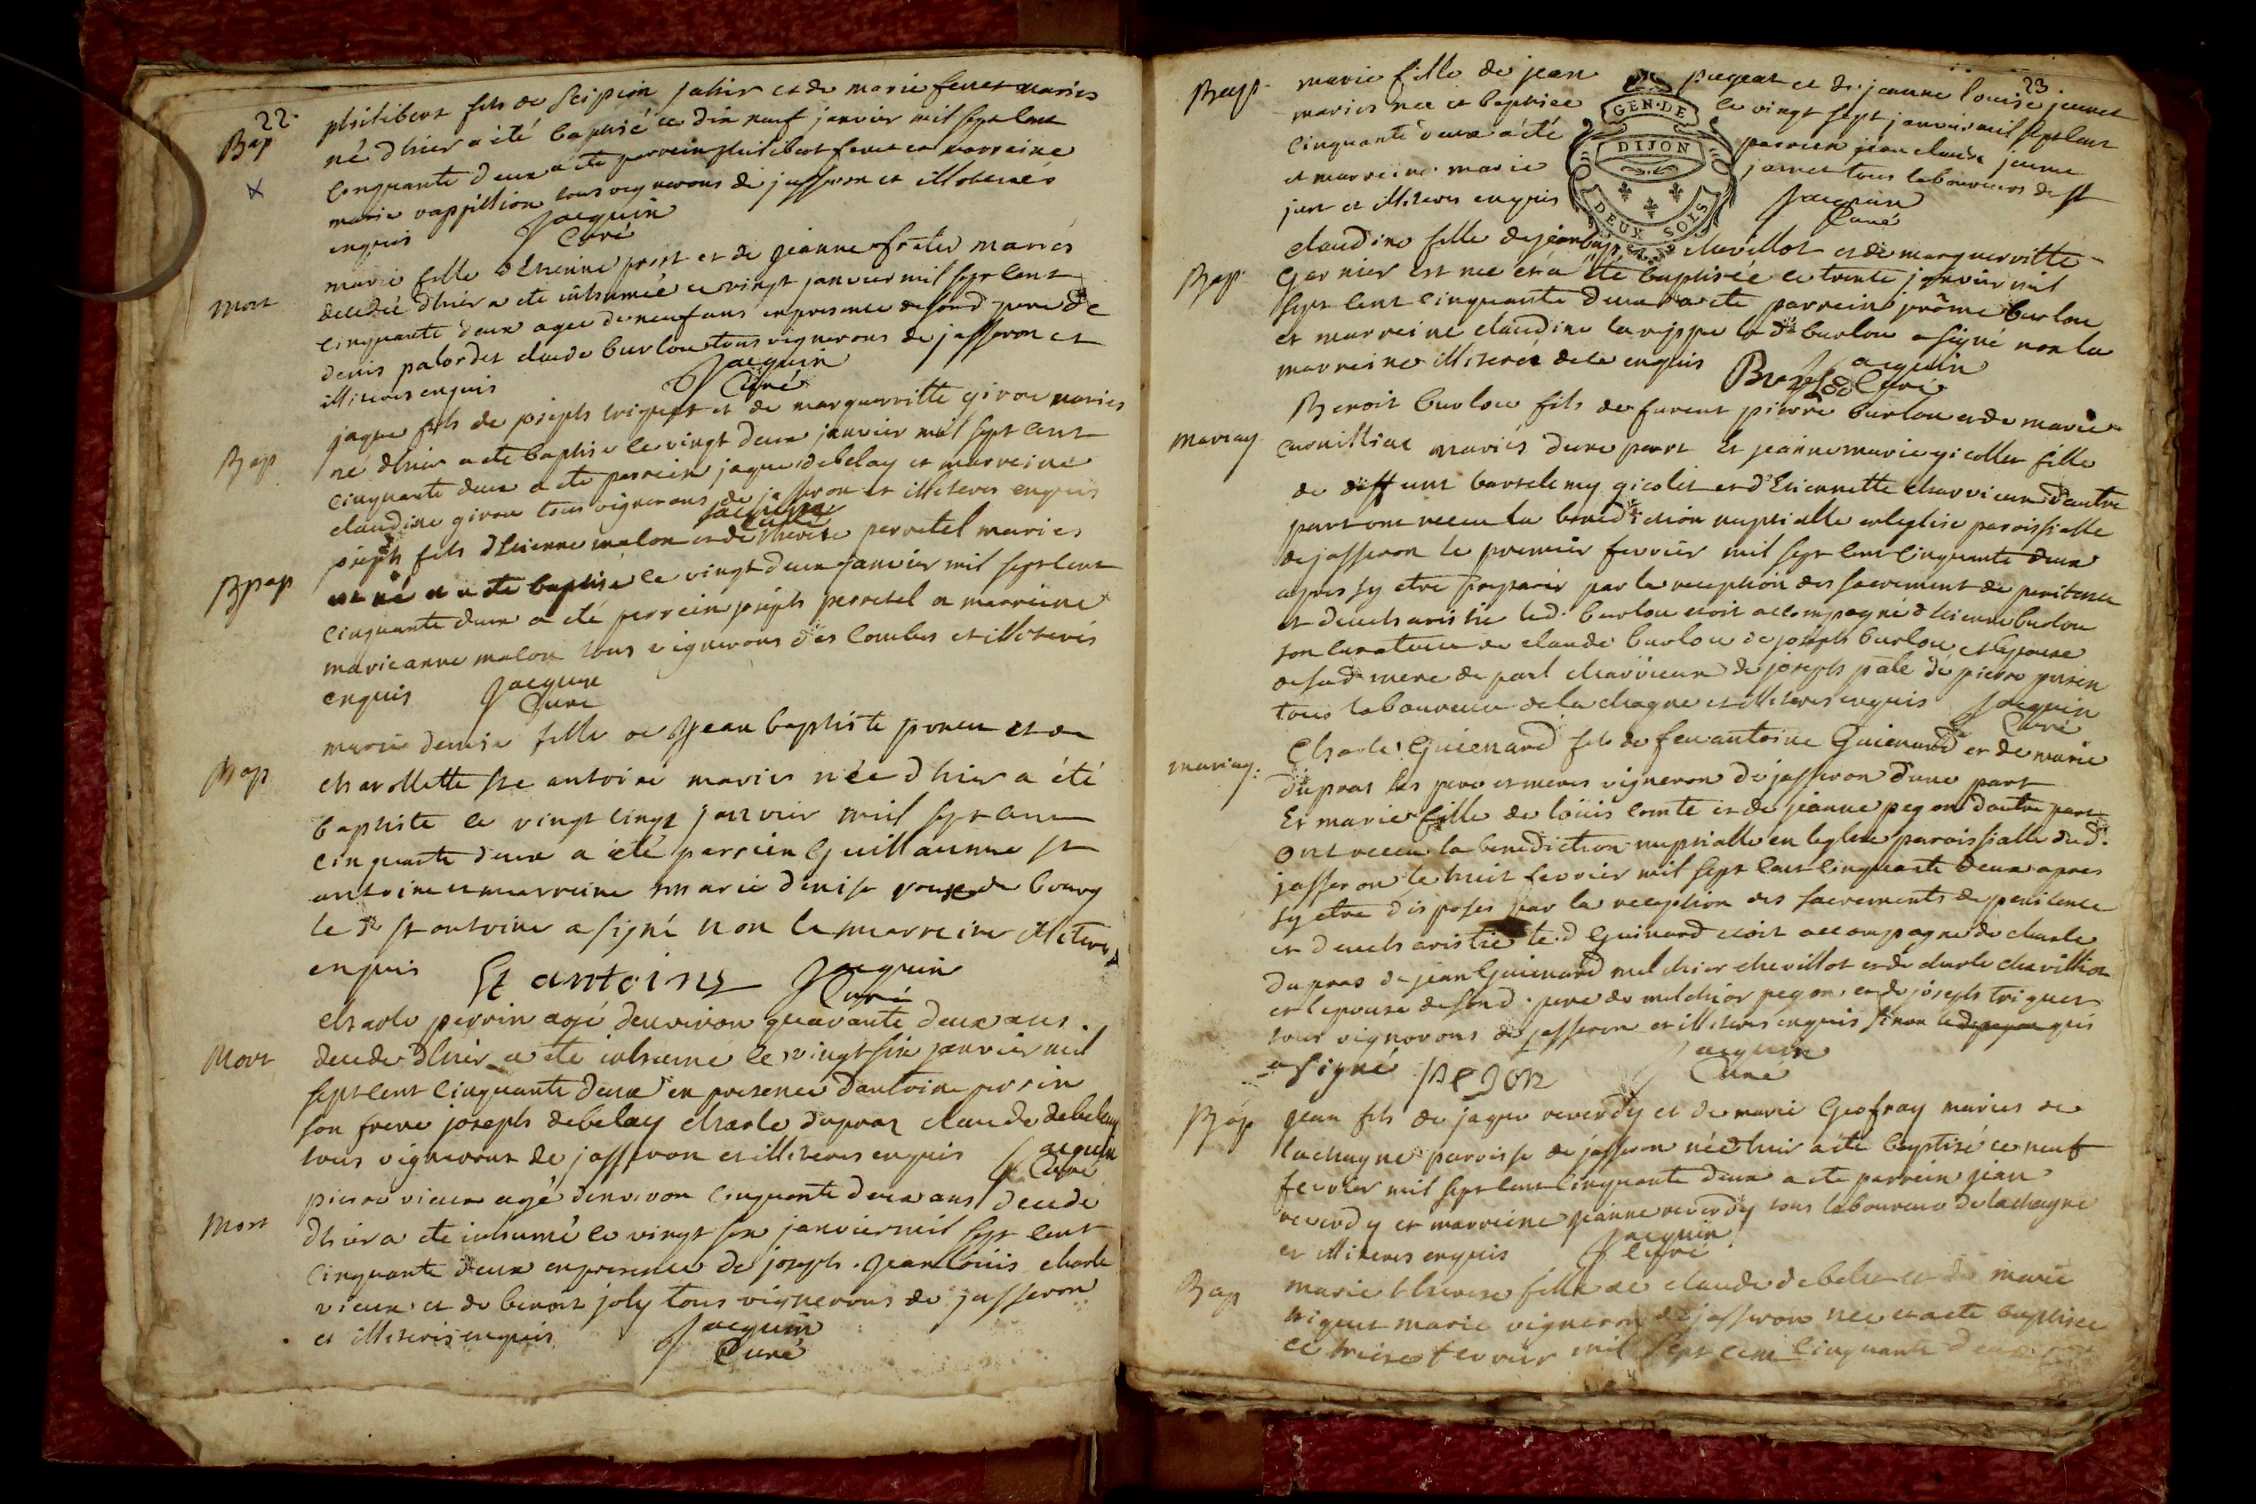 22.
Bap
philibert fils de scipion et de marie feret mariés
né dhier a été baptisé ce dix neuf janvier mil sept cent
cinquante deux a ete parrein philibert feret et marreine
marie tous vignerons de jasseron et illiterés
enquis Jacquin
Curé
mort
marie fille d'Etienne prost et de jeanne mariés
decedée dhier a ete inhumée ce vingt janvier mil sept cent
cinquante deux agee de neuf ans en presence de son d. pere de
denis palordet claude burlou tous vignerons de jasseron et
illiterés enquis Jacquin
Curé
Bap
jaque fils de joseph triquet et de marguerritte girou mariés
né dhier a ete baptisé le vingt deux janvier mil sept cent
cinquante deux a ete parrein jaque debelay et marreine
claudine girou tous vignerons de jasseron et illiterés enquis
Jacquin
Curé
Bap
joseph fils dEtienne malon et de therese perretel mariés
est né et a ete baptisé le vingt deux janvier mil sept cent
cinquante deux a été parrein joseph perretel et marreine
marieanne malon tous vignerons des combes et illiterés
enquis Jacquin
Curé
Bap
marie denise fille de Jean baptiste et de
charollette st antoine mariés née dhier a été
baptisée le vingt cinq janvier mil sept cent
cinquante deux a été parrein Guillaume st
antoine et marreine marie denise de bourg
le d. st antoine a signé non la marreine illiterée
enquis St antoine Jacquin
Curé
Mort
charle perrin agé denviron quarante deux ans
decedé dhier a ete inhumé le vingt six janvier mil
sept cent cinquante deux en presence dantoine perrin
son frere joseph debelay charle dupras claude debelay
tous vignerons de jasseron et illiterés enquis Jacquin
Curé
Mort
pierre vieux agé denviron cinquante deux ans decedé
dhier a ete inhumé le vingt janvier mil sept cent
cinquante deux en presence de joseph. jean louis charle
vieux et de benoit joly tous vignerons de jasseron
et illiterés enquis Jacquin
Curé
23
Bap
marie fille de jean et de jeanne louise jannet
mariés née et baptisée le vingt sept janvier mil sept cent
cinquante deux a été parrein jean claude
et marreine marie jannet tous laboureurs de st
just et illiterés enquis Jacquin
Curé
GEN. DE
DIJON
DEUX SOLS
Bap
claudine fille de jean bap. chevillot et de marguerritte
Garnier est née et a été baptisée le trente janvier mil
sept cent cinquante deux a ete parrein jerôme burlou
et marreine claudine le d. burlou a signé non la
marreine illiterée de ce enquis Jacquin
Curé
mariag
Benoit burlou fils de furent pierre burlou et de marie
mariés dune part Et jeanne marie gicollet fille
de deffunt bartelemy gicolet et d'Etiennette charvieux d'autre
part ont receu la benediction nuptialle en leglise paroissialle
de jasseron le premier fevrier mil sept cent cinquante deux
apres sy etre preparés par la reception des sacrement de penitence
et deucharistie le d. burlou etoit accompagné dEtienne burlou
son curateur de claude burlou de joseph burlou et lepouse
de sad. mere de paul charvieux de joseph de pierre
tous laboureurs de la chagne et illiterés enquis Jacquin
Curé
mariag.
Charle Guienard fils de feu antoine Guienard et de marie
dupras ses pere et mere vigneron de jasseron d'une part
Et marie fille de loüis comte et de jeanne pegon d'autre part
ont receu la benediction nuptialle en leglise paroissialle dud.
jasseron le huit fevrier mil sept cent cinquante deux apres
sy etre disposés par la reception des sacrements de penitence
et deucharistie le d. Guienard etoit accompagné de charle
dupras de jean Guienard melchior chevillot et de charle chevillot
et lepouse de son d. pere de melchior pegon et de joseph triquet
tous vignerons de jasseron et illiterés enquis sinon qui
a signé Pegon Jacquin
Curé
Bap
jean fils de jaque reverdy et de marie Geofray mariés de
lachagne parroisse de jasseron né dhier a ete baptisé ce neuf
fevrier mil sept cent cinquante deux a ete parrein jean
reverdy et marreine jeanne reverdy tous laboureurs de lachagne
et illiterés enquis Jacquin
Curé
Bap
marie therese fille de claude debelet et de marie
triquet marié vigneron de jasseron née et a ete baptisée
ce treize fevrier mil sept cent cinquante deux